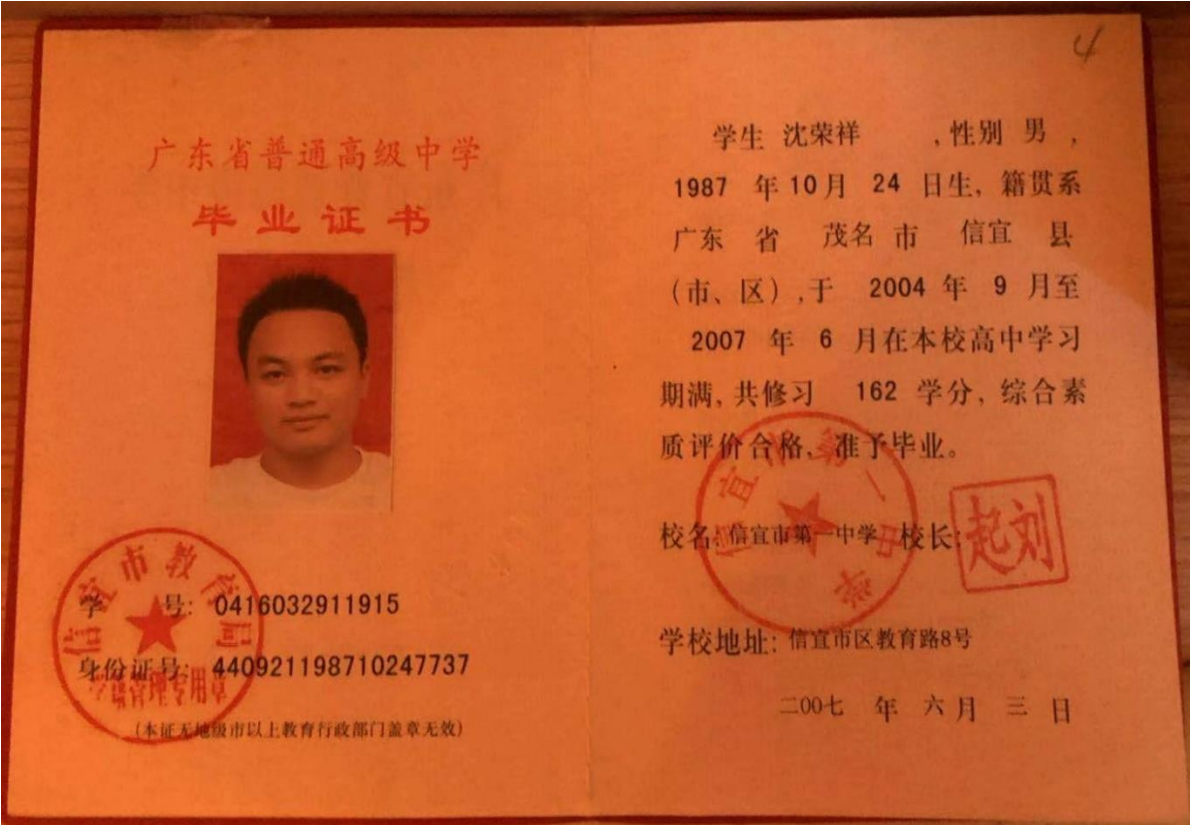 广东省普通高级中学
毕业证书
信宜市教育局
学籍管理专用章
学 号: 0416032911915
身份证号: 440921198710247737
(本证无地级市以上教育行政部门盖章无效)
4
学生 沈荣祥 ,性别 男 ,
1987 年 10 月 24 日生, 籍贯系
广东 省 茂名 市 信宜 县
(市、区) ,于 2004 年 9 月至
2007 年 6 月在本校高中学习
期满, 共修习 162 学分, 综合素
质评价合格, 准予毕业。
信宜市第一中学
校名: 信宜市第一中学 校长:
起刘
学校地址: 信宜市区教育路8号
二00七 年 六 月 三 日